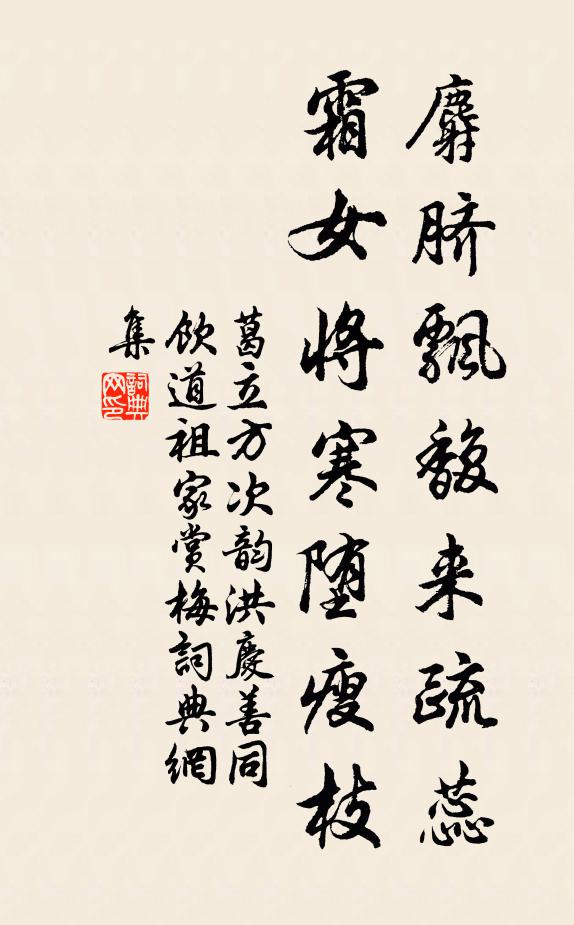 麝脐飄馥来疏蕊
霜女将寒堕瘦枝
葛立方次韵洪慶善同
飲道祖家赏梅詞典網
集
詞典网印